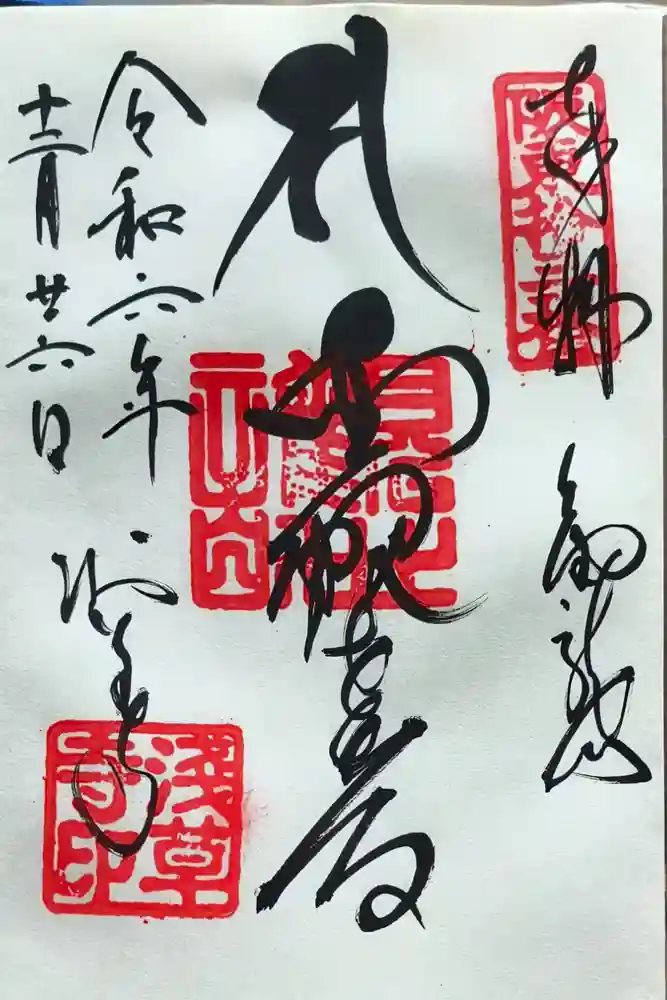 坂東拾三番
奉拝 金龍山
聖観
令和六年 浅草寺
十二月廿六日
浅草寺印